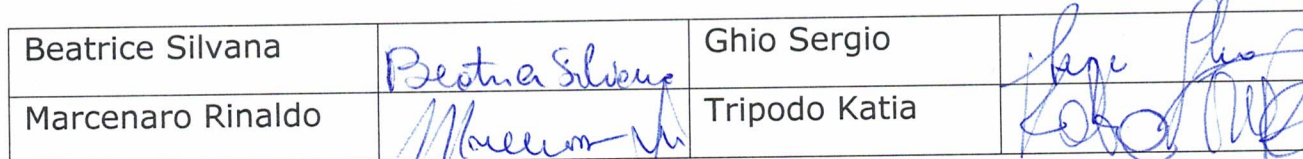 Beatrice Silvana Beatrice Silvana Ghio Sergio Sergio Ghio
Marcenaro Rinaldo Tripodo Katia Katia